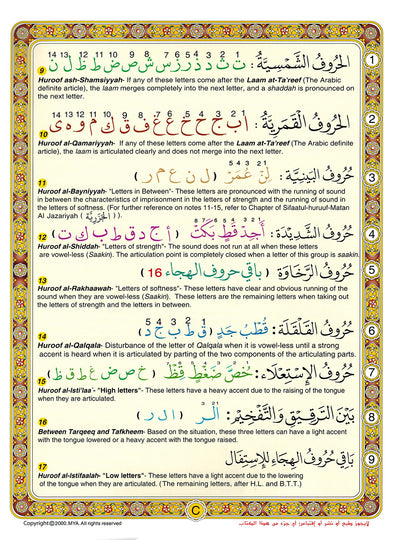 الحُرُوفُ الشَّمْسِيَّةُ : ت ث د ذ ر ز س ش ص ض ط ظ ل ن
1 2 3 4 5 6 7 8 9 10 11 12 13 14
1
9 Huroof ash-Shamsiyyah- If any of these letters come after the Laam at-Ta'reef (The Arabic
definite article), the laam merges completely into the next letter, and a shaddah is pronounced on
the next letter.
الحُرُوفُ القَمَرِيَّةُ : أ ب ج ح خ ع غ ف ق ك م و ه ى
1 2 3 4 5 6 7 8 9 10 11 12 13 14
2
10
Huroof al-Qamariyyah- If any of these letters come after the Laam at-Ta'reef (The Arabic definite
article), the laam is articulated clearly and does not merge into the next letter.
حُرُوفُ البَيْنِيَّةِ : لِنْ عُمَرْ ( ل ن ع م ر )
1 2 3 4 5
3
11
Huroof al-Bayniyyah- "Letters in Between"- These letters are pronounced with the running of sound
in between the characteristics of imprisonment in the letters of strength and the running of sound in
the letters of softness. (For further reference on notes 11-15, refer to Chapter of Sifaatul-huruuf-Matan
Al Jazariyah ( الجَزَرِيَّة ) ).
حُرُوفُ الشَّدِيْدَةِ : أَجِدْ قَطٍ بَكَتْ ( أ ج د ق ط ب ك ت )
1 2 3 4 5 6 7 8
4
12
Huroof al-Shiddah- "Letters of strength"- The sound does not run at all when these letters
are vowel-less (Saakin). The articulation point is completely closed when a letter of this group is saakin.
حُرُوفُ الرَّخَاوَةِ : بَاقِي حُرُوفِ الهِجَاءِ 16
5
13
Huroof al-Rakhaawah- "Letters of softness"- These letters have clear and obvious running of the
sound when they are vowel-less (Saakin). These letters are the remaining letters when taking out
the letters of strength and the letters in between.
حُرُوفُ القَلْقَلَةِ : قُطْبُ جَدٍ ( ق ط ب ج د )
1 2 3 4 5
6
14
Huroof al-Qalqala- Disturbance of the letter of Qalqala when it is vowel-less until a strong
accent is heard when it is articulated by parting of the two components of the articulating parts.
حُرُوفُ الإِسْتِعْلَاءِ : خُصَّ ضَغْطٍ قِظْ ( خ ص ض غ ط ق ظ )
7
15
Huroof al-Isti'laa'- "High letters"- These letters have a heavy accent due to the raising of the tongue
when they are articulated.
بَيْنَ التَّرْقِيْقِ وَالتَّفْخِيْمِ : الَر ( ا ل ر )
1 2 3
8
16
Between Tarqeeq and Tafkheem- Based on the situation, these three letters can have a light accent
with the tongue lowered or a heavy accent with the tongue raised.
بَاقِي حُرُوفُ الهِجَاءِ لِلإِسْتِفَالِ
9
17
Huroof al-Istifaalah- "Low letters"- These letters have a light accent due to the lowering
of the tongue when they are articulated. (The remaining letters, after H.L. and B.T.T.)
C
Copyright©2000.MYA.All rights reserved
لايجوز طبع أو نشر أو إقتباس أي جزء من هيئة الكتاب